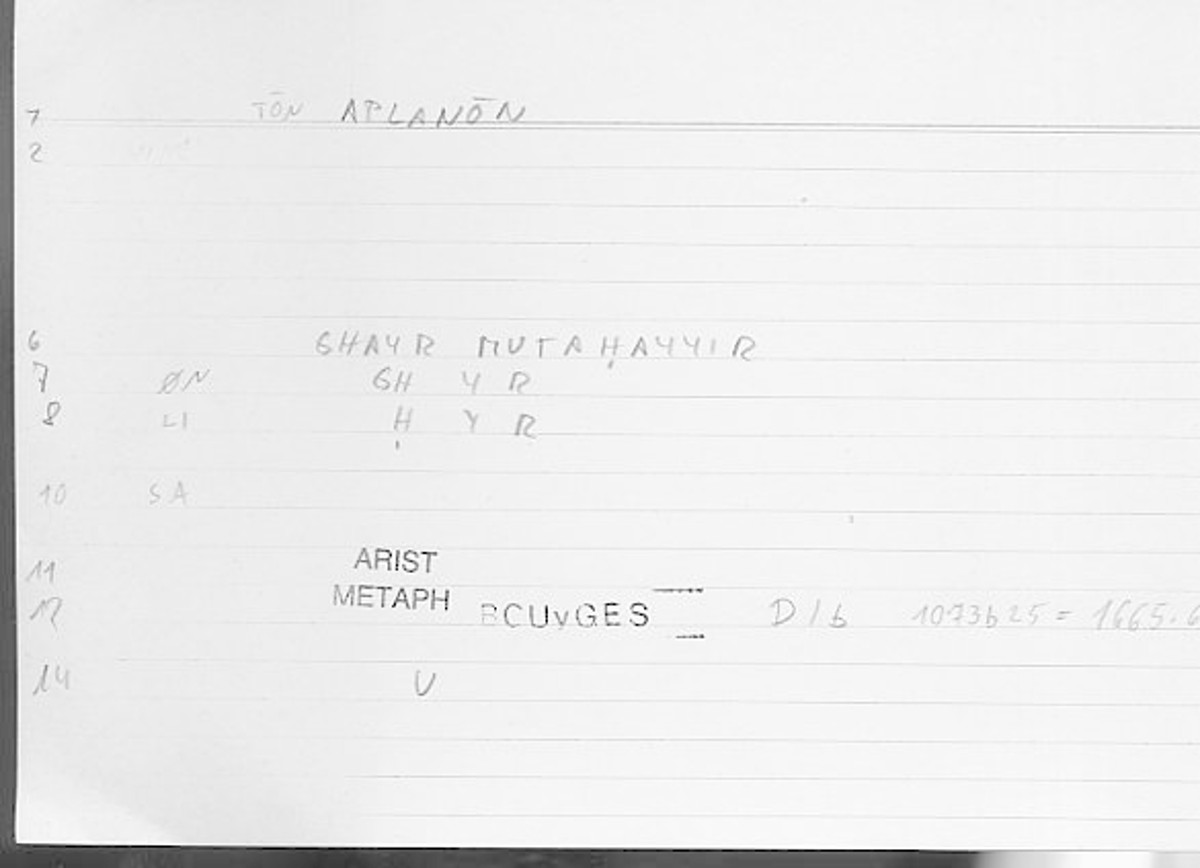 1 TŌN APLANŌN
2
6 GHAYR MUTAḤAYYIR
7 ØN GH Y R
8 LI Ḥ Y R
10 SA
11 ARIST
12 METAPH BCUvGES D/b 1073b25 = 1665.6
14 U